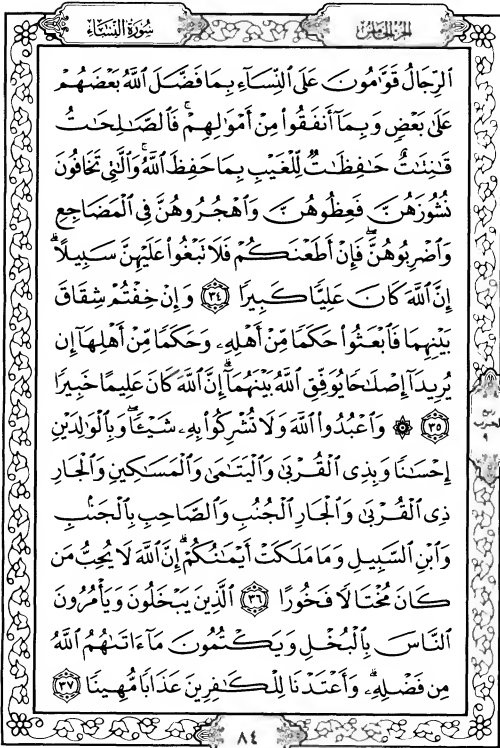 سُورَةُ النِّسَاءِ الجُزْءُ الخَامِسُ
ٱلرِّجَالُ قَوَّٰمُونَ عَلَى ٱلنِّسَآءِ بِمَا فَضَّلَ ٱللَّهُ بَعْضَهُمْ
عَلَىٰ بَعْضٍ وَبِمَآ أَنفَقُوا۟ مِنْ أَمْوَٰلِهِمْ ۚ فَٱلصَّٰلِحَٰتُ
قَٰنِتَٰتٌ حَٰفِظَٰتٌ لِّلْغَيْبِ بِمَا حَفِظَ ٱللَّهُ ۚ وَٱلَّٰتِى تَخَافُونَ
نُشُوزَهُنَّ فَعِظُوهُنَّ وَٱهْجُرُوهُنَّ فِى ٱلْمَضَاجِعِ
وَٱضْرِبُوهُنَّ ۖ فَإِنْ أَطَعْنَكُمْ فَلَا تَبْغُوا۟ عَلَيْهِنَّ سَبِيلًا ۗ
إِنَّ ٱللَّهَ كَانَ عَلِيًّا كَبِيرًا ٣٤ وَإِنْ خِفْتُمْ شِقَاقَ
بَيْنِهِمَا فَٱبْعَثُوا۟ حَكَمًا مِّنْ أَهْلِهِۦ وَحَكَمًا مِّنْ أَهْلِهَآ إِن
يُرِيدَآ إِصْلَٰحًا يُوَفِّقِ ٱللَّهُ بَيْنَهُمَآ ۗ إِنَّ ٱللَّهَ كَانَ عَلِيمًا خَبِيرًا
٣٥ ۞ وَٱعْبُدُوا۟ ٱللَّهَ وَلَا تُشْرِكُوا۟ بِهِۦ شَيْـًٔا ۖ وَبِٱلْوَٰلِدَيْنِ
إِحْسَٰنًا وَبِذِى ٱلْقُرْبَىٰ وَٱلْيَتَٰمَىٰ وَٱلْمَسَٰكِينِ وَٱلْجَارِ
ذِى ٱلْقُرْبَىٰ وَٱلْجَارِ ٱلْجُنُبِ وَٱلصَّاحِبِ بِٱلْجَنۢبِ
وَٱبْنِ ٱلسَّبِيلِ وَمَا مَلَكَتْ أَيْمَٰنُكُمْ ۗ إِنَّ ٱللَّهَ لَا يُحِبُّ مَن
كَانَ مُخْتَالًا فَخُورًا ٣٦ ٱلَّذِينَ يَبْخَلُونَ وَيَأْمُرُونَ
ٱلنَّاسَ بِٱلْبُخْلِ وَيَكْتُمُونَ مَآ ءَاتَىٰهُمُ ٱللَّهُ
مِن فَضْلِهِۦ ۗ وَأَعْتَدْنَا لِلْكَٰفِرِينَ عَذَابًا مُّهِينًا ٣٧
ربع
الحزب
٩
٨٤